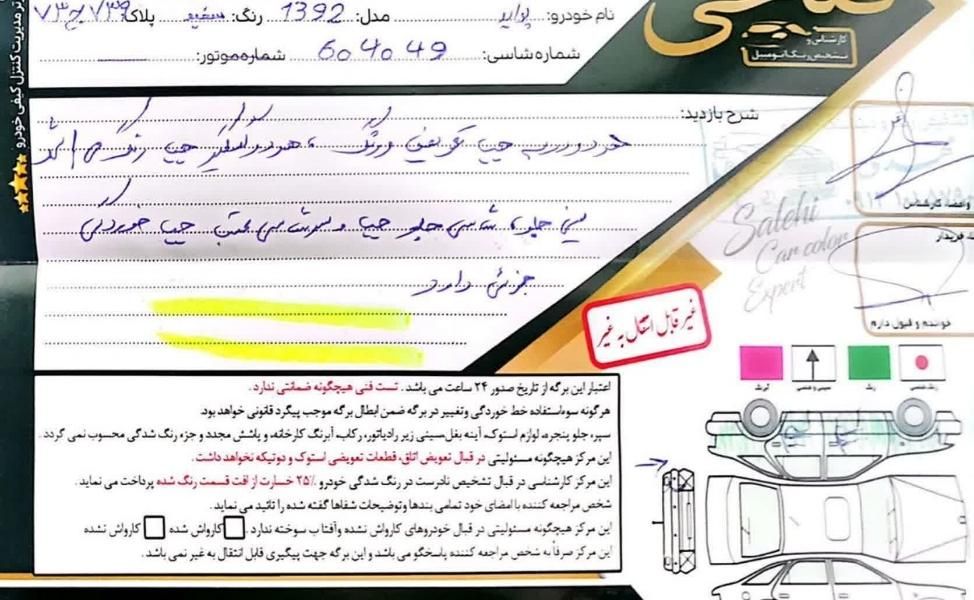 نام خودرو: پراید مدل: 1392 رنگ: سفید پلاک:
شماره شاسی: 604049 شماره موتور:
کارشناسی و
تشخیص رنگ اتومبیل
مدیریت کنترل کیفی خودرو
شرح بازدید:
خودرو درب جلو چپ تعویض و رنگ، هر دو گلگیر چپ رنگ
سینی جلو، شاسی جلو چپ و سرشاسی عقب چپ خوردگی
جزئی دارد
Salehi
Car color
Expert
خریدار
خوانده و قبول دارم
غیر قابل انتقال به غیر
اعتبار این برگه از تاریخ صدور ۲۴ ساعت می باشد. تست فنی هیچگونه ضمانتی ندارد.
هر گونه سوء استفاده خط خوردگی و تغییر در برگه ضمن ابطال برگه موجب پیگرد قانونی خواهد بود.
سپر، جلو پنجره، لوازم استوک، آینه بغل، سینی زیر رادیاتور، رکاب، آبرنگ کارخانه، و پاشش مجدد و جزء رنگ شدگی محسوب نمی گردد.
این مرکز هیچگونه مسئولیتی در قبال تعویض اتاق، قطعات تعویضی استوک و دوتیکه نخواهد داشت.
این مرکز کارشناسی در قبال تشخیص نادرست در رنگ شدگی خودرو ۲۵٪ خسارت از افت قسمت رنگ شده پرداخت می نماید.
شخص مراجعه کننده با امضای خود تمامی بندها و توضیحات شفاها گفته شده را تائید می نماید.
این مرکز هیچگونه مسئولیتی در قبال خودروهای کارواش نشده و آفتاب سوخته ندارد. کارواش شده کارواش نشده
این مرکز صرفاً به شخص مراجعه کننده پاسخگو می باشد و این برگه جهت پیگیری قابل انتقال به غیر نمی باشد.